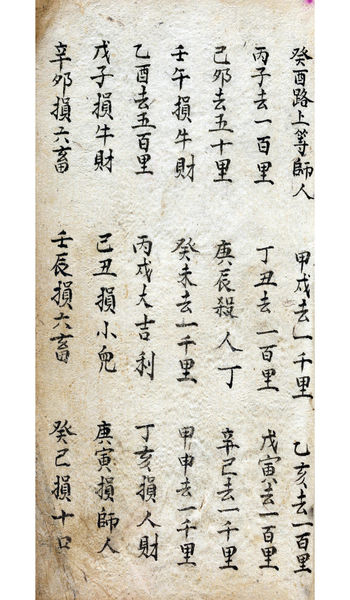 癸酉路上等師人 甲戌去一千里 乙亥去一百里
丙子去一百里 丁丑去一百里 戊寅去一百里
己夘去五十里 庚辰殺人丁 辛巳去一千里
壬午損牛財 癸未去一千里 甲申去一千里
乙酉去五百里 丙戌大吉利 丁亥損人財
戊子損牛財 己丑損小兒 庚寅損師人
辛夘損六畜 壬辰損六畜 癸巳損十口